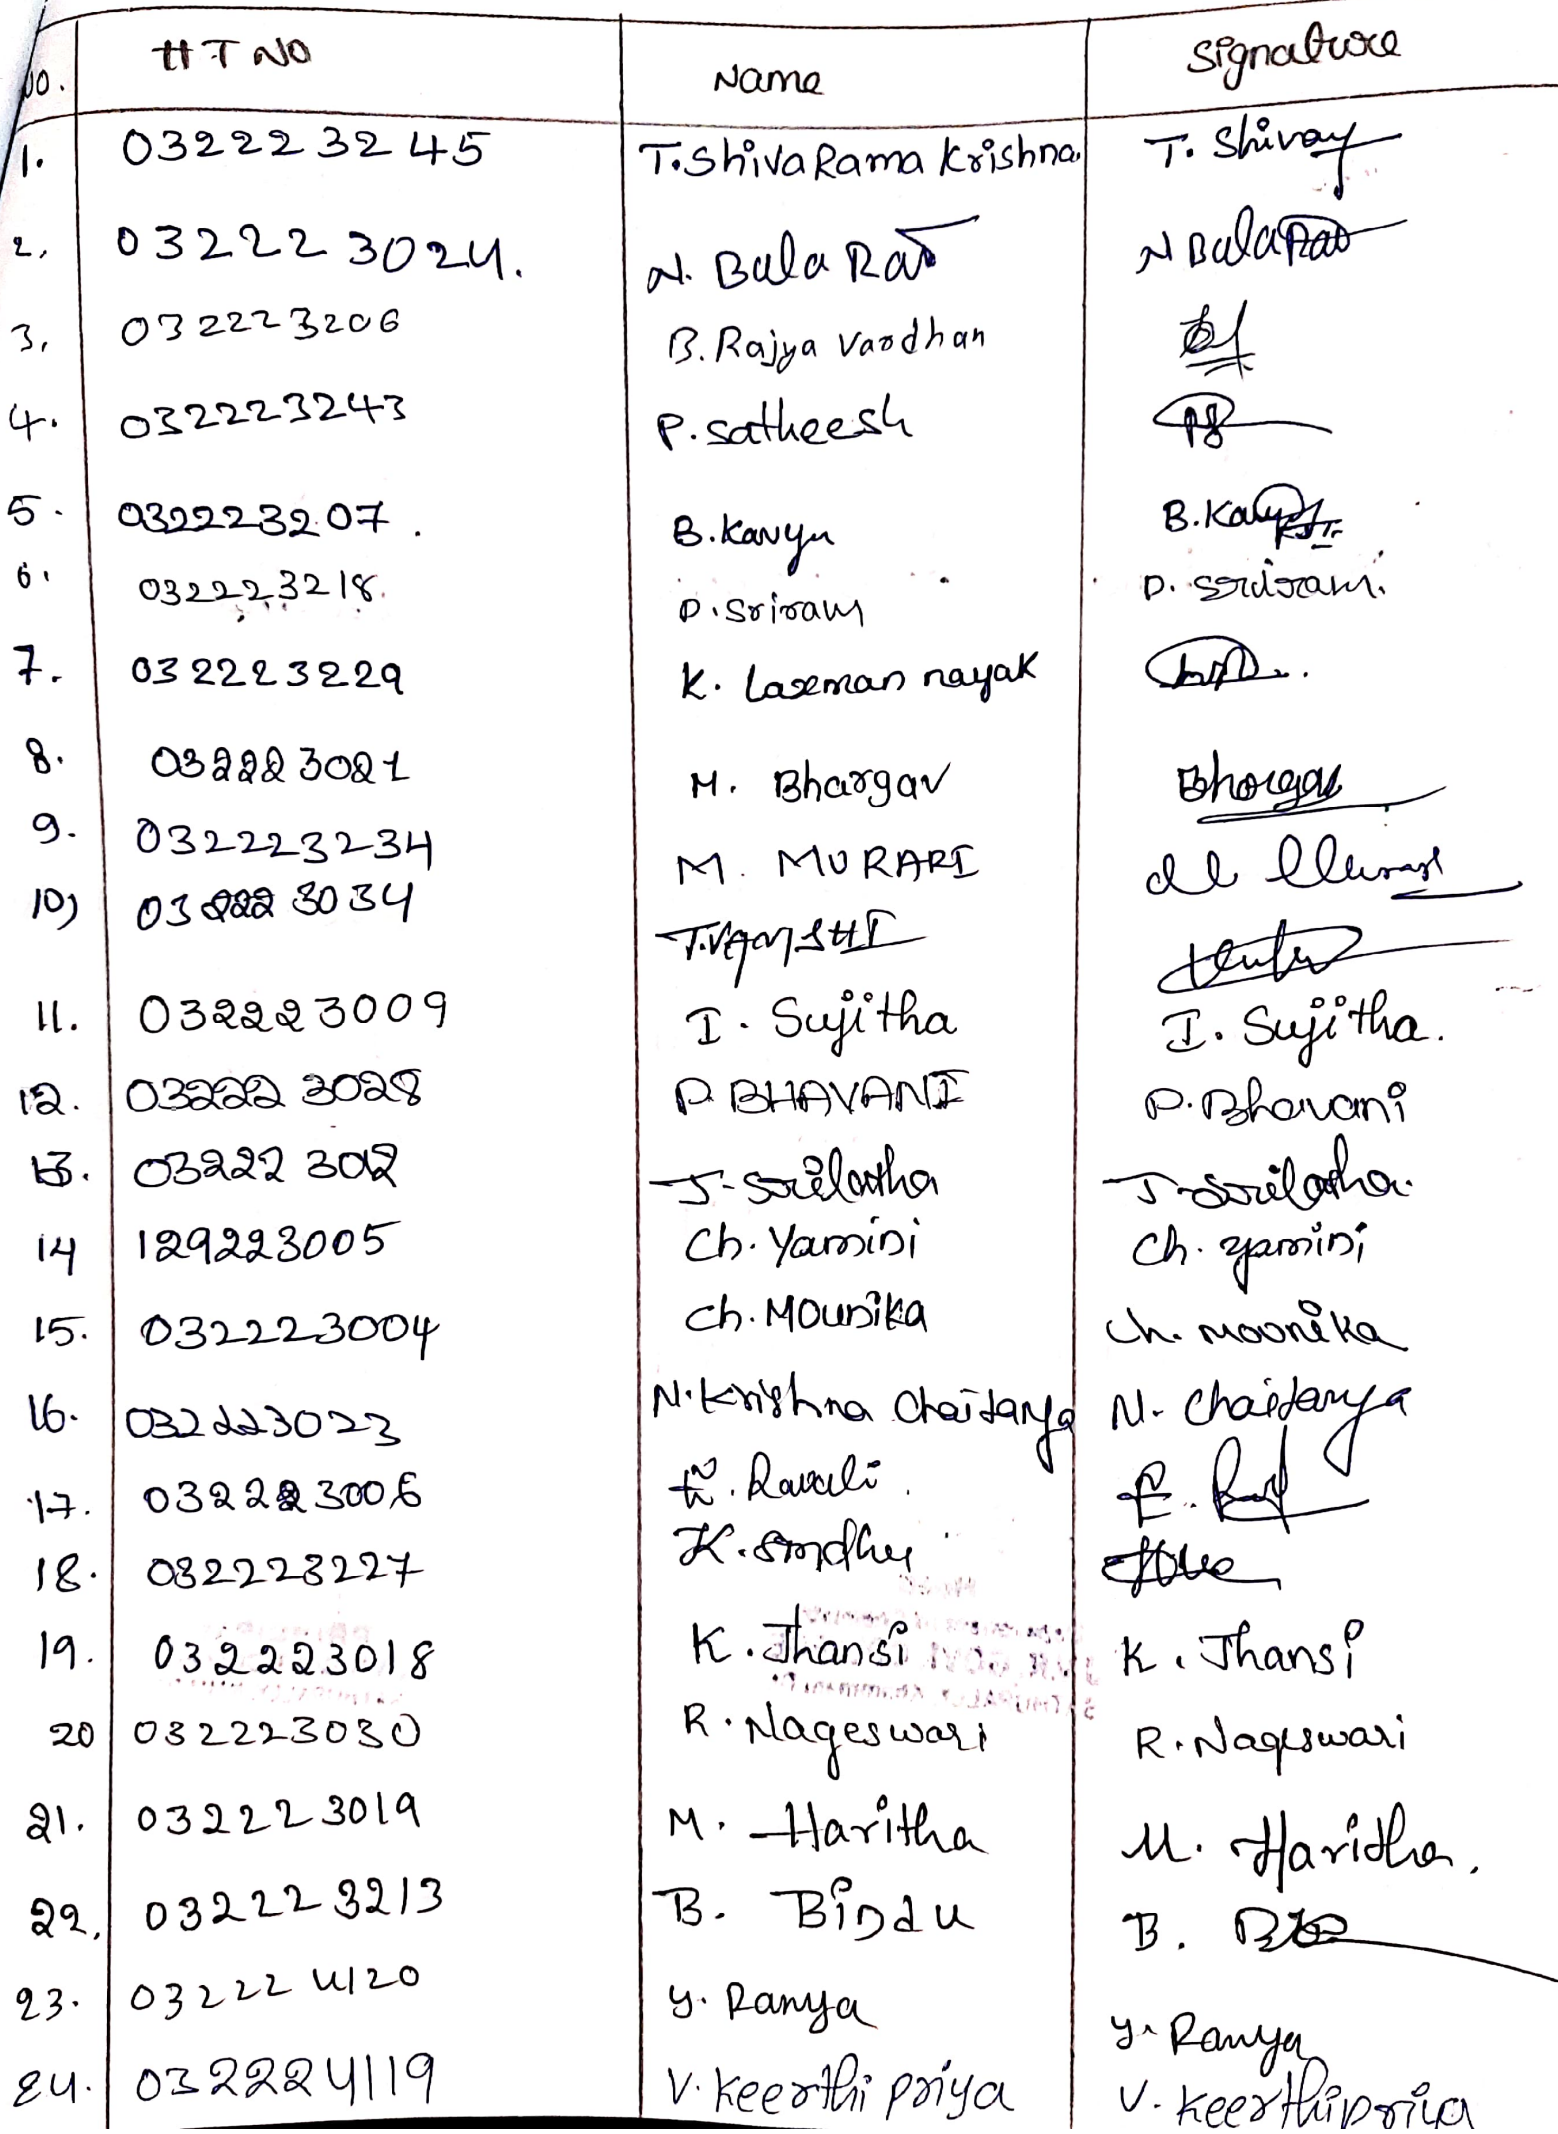 No. HT NO Name Signature
1. 032223245 T. Shiva Rama Krishna T. Shiva
2. 032223024. N. Bala Rao N Bala Rao
3. 032223206 B. Rajya Vardhan
4. 032223243 P. Satheesh
5. 032223207. B. Kavya B. Kavya
6. 032223218. D. Sriram D. Sriram.
7. 032223229 K. Laxman nayak
8. 032223021 M. Bhargav Bhargav
9. 032223234 M. MURARI
10) 032223034 T. VAMSHI
11. 032223009 I. Sujitha I. Sujitha.
12. 032223028 P. BHAVANI P. Bhavani
13. 032223012 J. Srilatha J. Srilatha.
14 129223005 Ch. Yamini Ch. yamini
15. 032223004 Ch. Mounika Ch. moonika
16. 032223023 N. Krishna Chaitanya N. Chaitanya
17. 032223006 E. Ravali. E.
18. 032223227 K. Sindhu
19. 032223018 K. Jhansi K. Jhansi
20 032223030 R. Nageswari R. Nageswari
21. 032223019 M. Haritha M. Haritha.
22, 032223213 B. Bindu B.
23. 032224120 Y. Ramya Y. Ramya
24. 032224119 V. Keerthi priya V. Keerthi priya